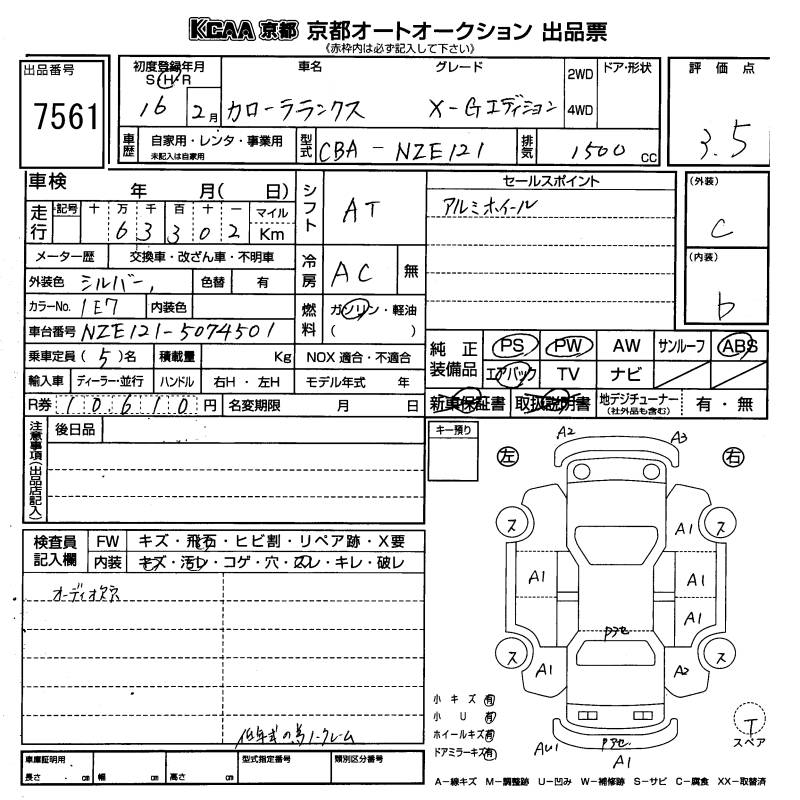 KCAA 京都 京都オートオークション 出品票
《赤枠内は必ず記入して下さい》
出品番号
7561
初度登録年月
S・H・R
16 2月
車名
カローラランクス
グレード
X-Gエディション
2WD
4WD
ドア・形状
評価点
3.5
車歴
自家用・レンタ・事業用
未記入は自家用
型式
CBA-NZE121
排気
1500 cc
車検 年 月( 日)
走行
記号 十 万 千 百 十 一 マイル
6 3 3 0 2 Km
メーター歴 交換車・改ざん車・不明車
外装色 シルバー 色替 有
カラーNo. 1E7 内装色
車台番号 NZE121-5074501
乗車定員 (5)名 積載量 Kg
NOX 適合・不適合
輸入車 ディーラー・並行 ハンドル 右H・左H モデル年式 年
R券 10610円 名変期限 月 日
シフト AT
冷房 AC 無
燃料 ガソリン・軽油
( )
セールスポイント
アルミホイール
(外装)
C
(内装)
b
純正装備品
PS PW AW サンルーフ ABS
エアバック TV ナビ
新車保証書 取扱説明書 地デジチューナー(社外品も含む) 有・無
注意事項(出品店記入)
後日品
キー預り
左 右
検査員記入欄
FW キズ・飛石・ヒビ割・リペア跡・X要
内装 キズ・汚レ・コゲ・穴・スレ・キレ・破レ
オーディオ欠穴
低年式の為ノークレーム
A2 A3
ス ス
A1
A1 A1
A1
ス ス
A1 A2
AU1
A1
小キズ 有
小U 有
ホイールキズ 有
ドアミラーキズ 有
T
スペア
車庫証明用
長さ cm 幅 cm 高さ cm
型式指定番号
類別区分番号
A-線キズ M-調整跡 U-凹み W-補修跡 S-サビ C-腐食 XX-取替済